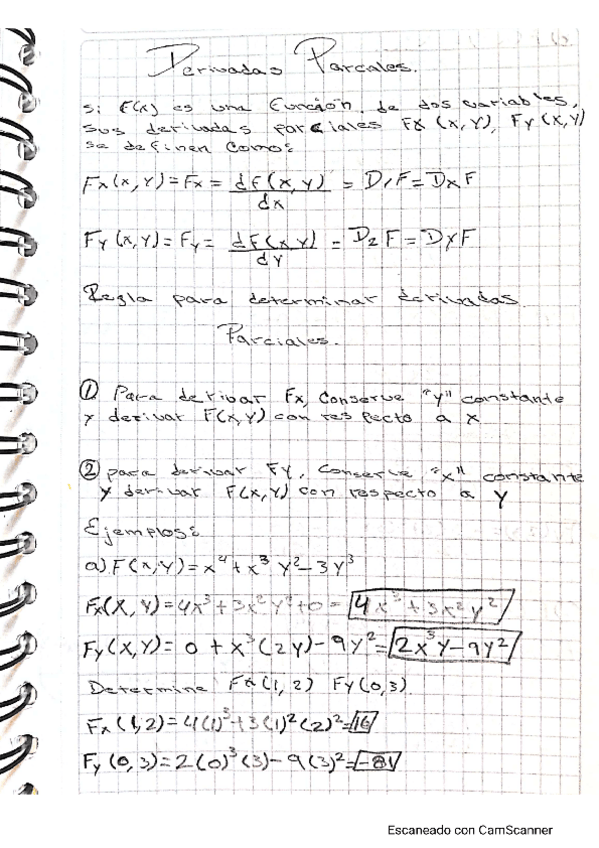 Derivadas Parcales.
si F(x) es una función de dos variables,
sus derivadas parciales Fx (x,y), Fy (x,y)
se definen como:
Fx (x,y) = Fx = dF(x,y)/dx = D1F = DxF
Fy (x,y) = Fy = dF(x,y)/dy = D2F = DyF
Regla para determinar derivadas
Parciales.
① Para derivar Fx, Conserve "y" constante
y derivar F(x,y) con respecto a x
② para derivar Fy, Conserve "x" constante
y derivar F(x,y) con respecto a y
Ejemplos:
a) F(x,y) = x⁴ + x³ y² - 3y³
Fx(x,y) = 4x³ + 3x² y² + 0 = 4x³ + 3x² y²
Fy(x,y) = 0 + x³(2y) - 9y² = 2x³y - 9y²
Determine Fx(1,2) Fy(0,3)
Fx (1,2) = 4(1)³ + 3(1)² (2)² = 16
Fy (0,3) = 2(0)³ (3) - 9(3)² = -81
Escaneado con CamScanner